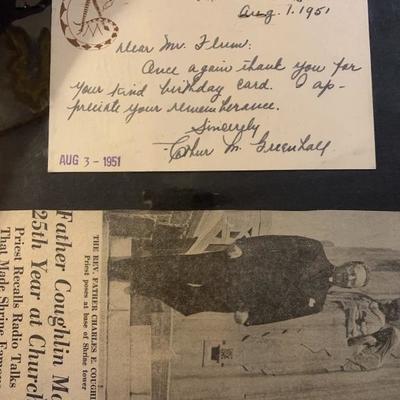 Aug. 1. 1951
Dear Mr. Flum:
Once again thank you for
your kind birthday card. I ap-
preciate your rememberance.
Sincerely
M. Greenhall
AUG 3 - 1951
Father Coughlin
25th Year at Church
Priest Recalls Radio Talks
That Made Shrine
THE REV. FATHER CHARLES E.
Priest poses at base of Shrine tower